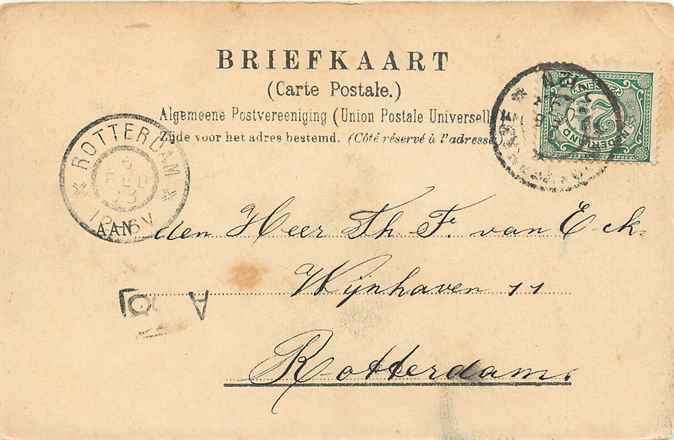 BRIEFKAART
(Carte Postale.)
Algemeene Postvereeniging (Union Postale Universell
Zijde voor het adres bestemd. (Côté réservé à l'adresse
ROTTERDAM
FEB
AAN
den Heer Th. F. van Eck.
Wijnhaven 11
Rotterdam.
A